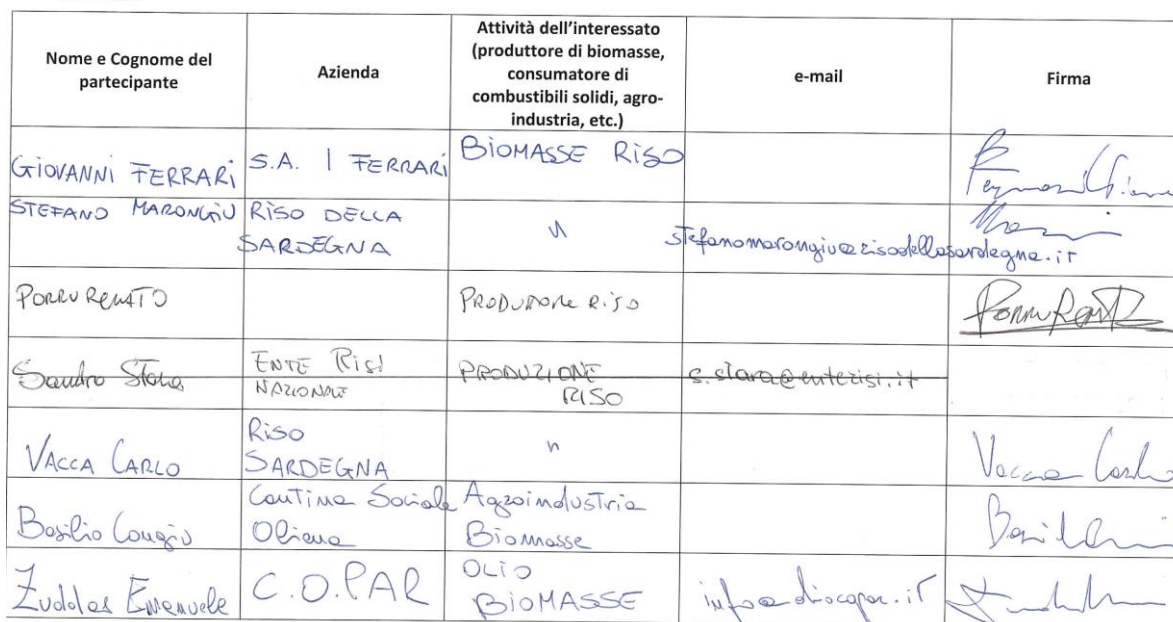 Nome e Cognome del
partecipante
Azienda
Attività dell'interessato
(produttore di biomasse,
consumatore di
combustibili solidi, agro-
industria, etc.)
e-mail
Firma
GIOVANNI FERRARI
S.A. I FERRARI
BIOMASSE RISO
STEFANO MARONGIU
RISO DELLA
SARDEGNA
"
stefanomarongiu@risodellasardegna.it
PORRU RENATO
PRODUZIONE RISO
Porru Renato
Sandro Stara
ENTE RISI
NAZIONALE
PRODUZIONE
RISO
s.stara@enterisi.it
VACCA CARLO
RISO
SARDEGNA
"
Vacca Carlo
Basilio Congiu
Cantina Sociale
Oliena
Agroindustria
Biomasse
Zuddas Emanuele
C.O.PAR
OLIO
BIOMASSE
info@oliocopar.it